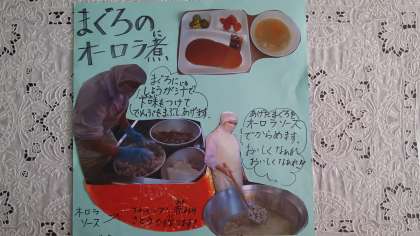 まぐろの
オーロラ煮
に
まぐろに
しょうが汁で
下味をつけて
でんぷんをまぶしあげます。
あげたまぐろを
オーロラソース
でからめます。
おいしくなあれ
おいしくなあれ
オーロラ
ソース